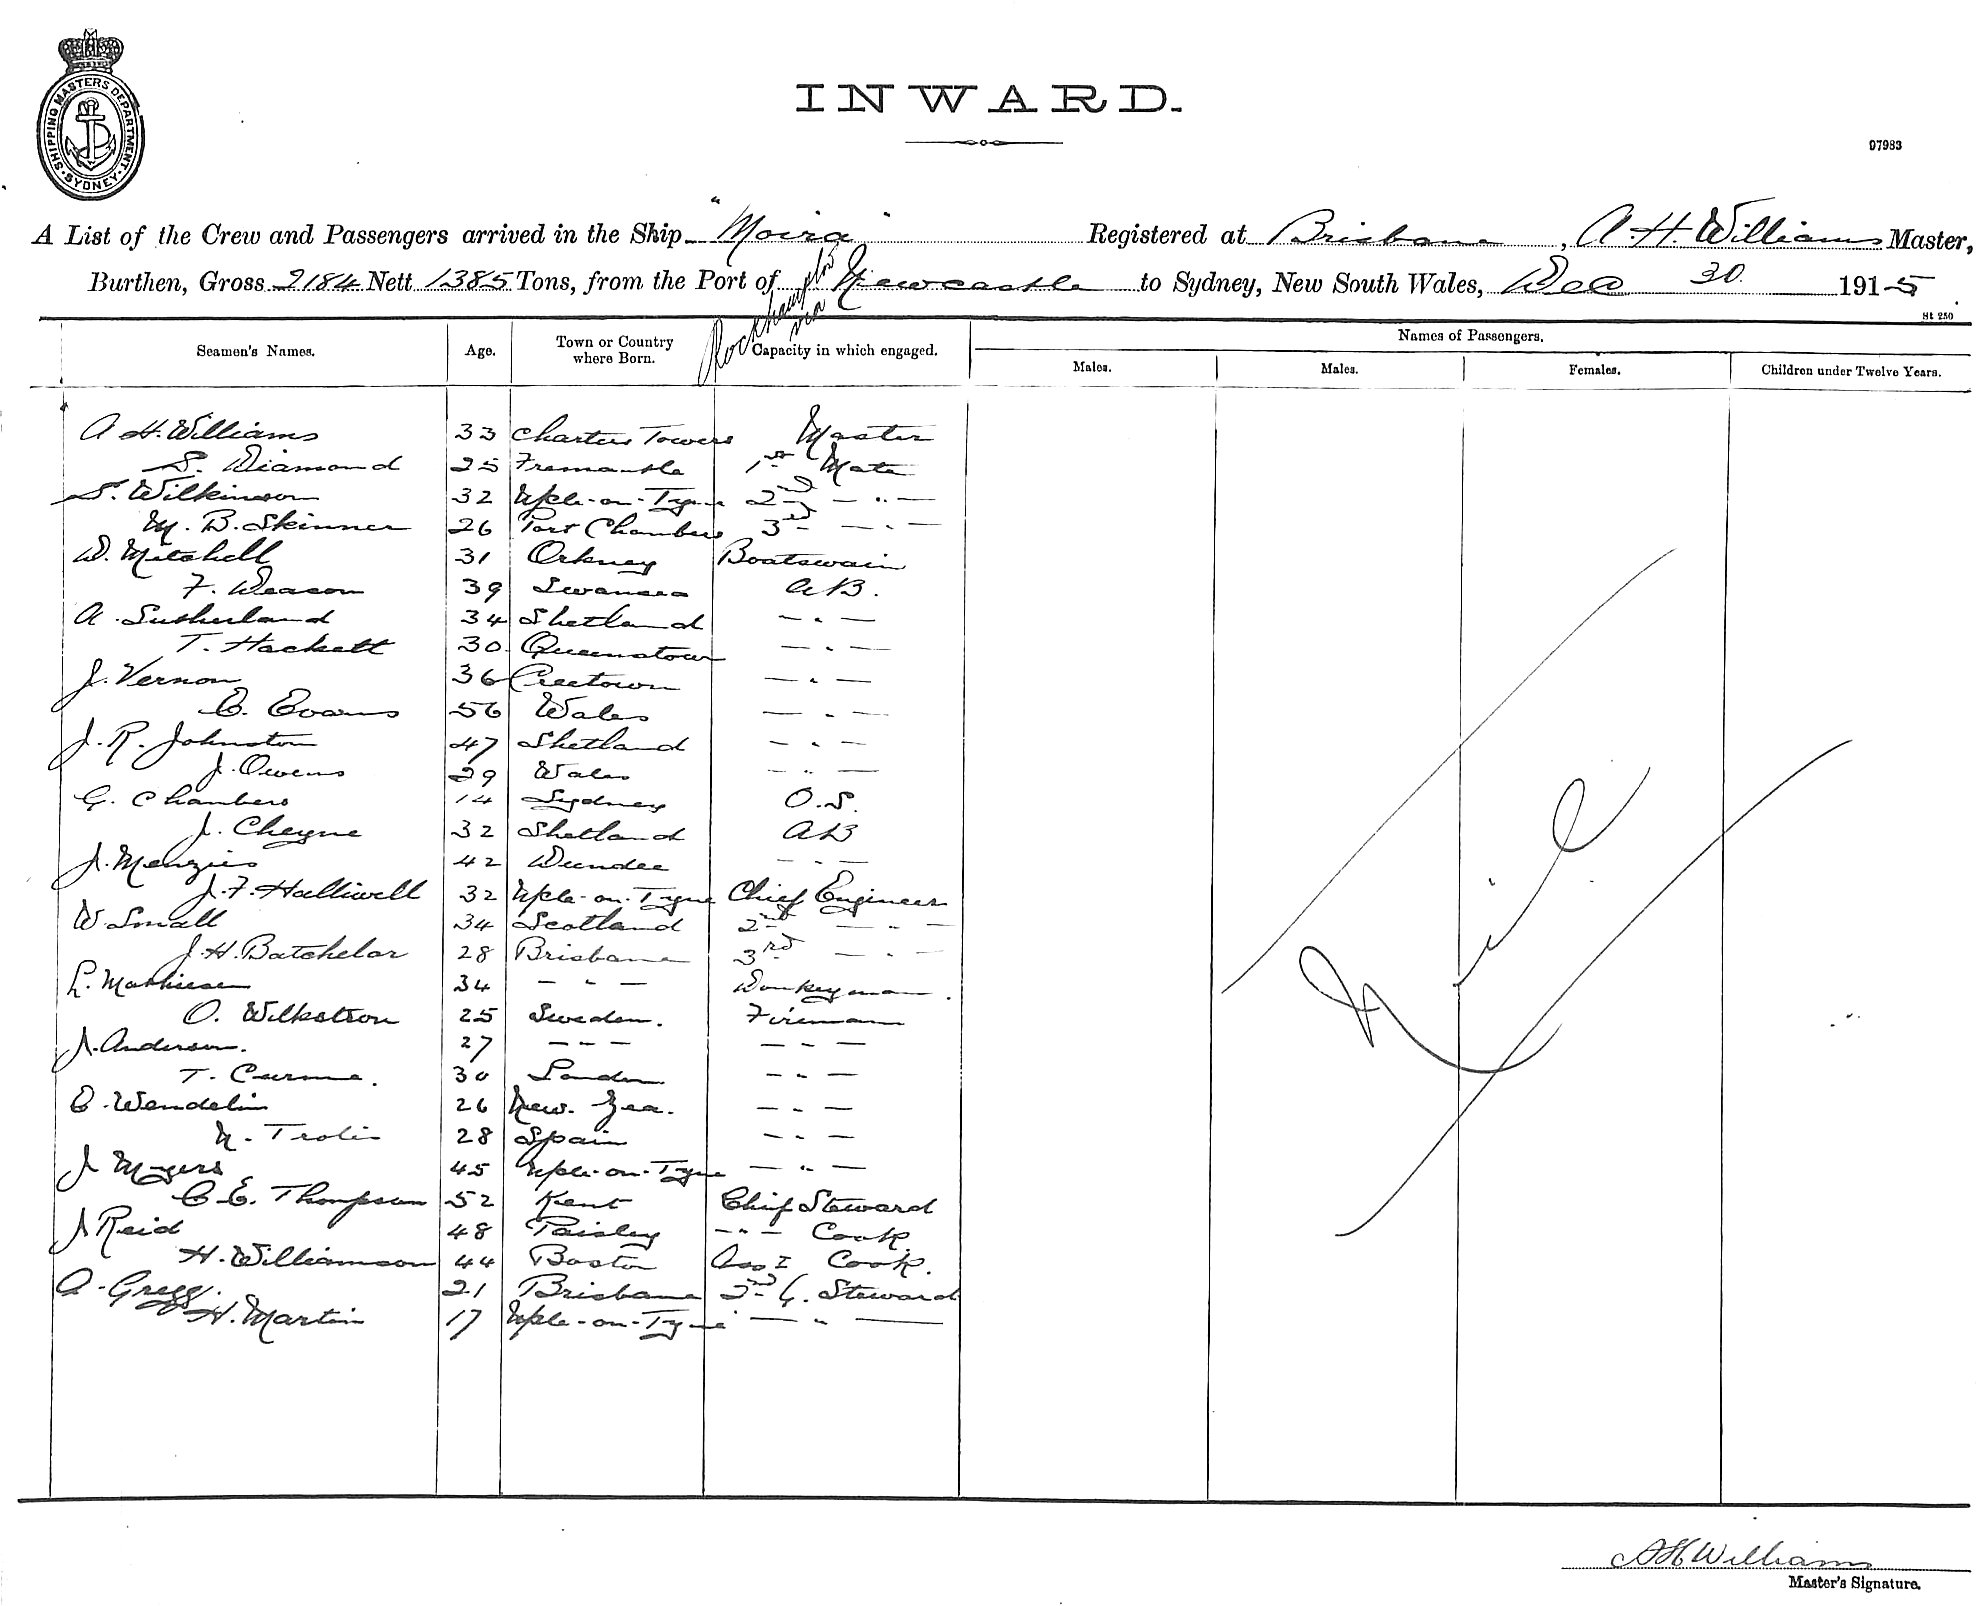 SHIPPING MASTERS DEPARTMENT. SYDNEY
INWARD.
97983
A List of the Crew and Passengers arrived in the Ship "Moira" Registered at Brisbane, A. H. Williams Master,
Burthen, Gross 2184 Nett 1385 Tons, from the Port of Rockhampton via Newcastle to Sydney, New South Wales, Dec 30 1915
St 250
Seamen's Names. Age. Town or Country where Born. Capacity in which engaged. Names of Passengers.
Males. Males. Females. Children under Twelve Years.
A H. Williams 33 Charters Towers Master
S. Diamond 25 Fremantle 1st Mate
S. Wilkinson 32 N'ple-on-Tyne 2nd — " —
M. B. Skinner 26 Port Chambers 3rd — " —
D. Mitchell 31 Orkney Boatswain
F. Deason 39 Swansea AB.
A. Sutherland 34 Shetland — " —
T. Hackett 30 Queenstown — " —
J. Vernon 36 Creetown — " —
E. Evans 56 Wales — " —
J. R. Johnston 47 Shetland — " —
J. Owens 29 Wales — " —
G. Chambers 14 Sydney O.S.
J. Cheyne 32 Shetland AB
J. Menzies 42 Dundee — " —
J. F. Halliwell 32 N'ple-on-Tyne Chief Engineer
W Small 34 Scotland 2nd — " —
J. H. Batchelor 28 Brisbane 3rd — " —
L. Mathiesen 34 — " — Donkeyman.
O. Wilkstrom 25 Sweden. Fireman
J. Anderson. 27 — " — — " —
T. 30 London — " —
E. Wendelin 26 New. Zea. — " —
N. Trolis 28 Spain — " —
J Myers 45 N'ple-on-Tyne — " —
C E. Thompson 52 Kent Chief Steward
J Reid 48 Paisley — " — Cook
H. Williamson 44 Boston Asst Cook.
A. Gregg. 21 Brisbane 2nd G. Steward
H. Martin 17 N'ple-on-Tyne — " —
Nil
A H Williams
Master's Signature.